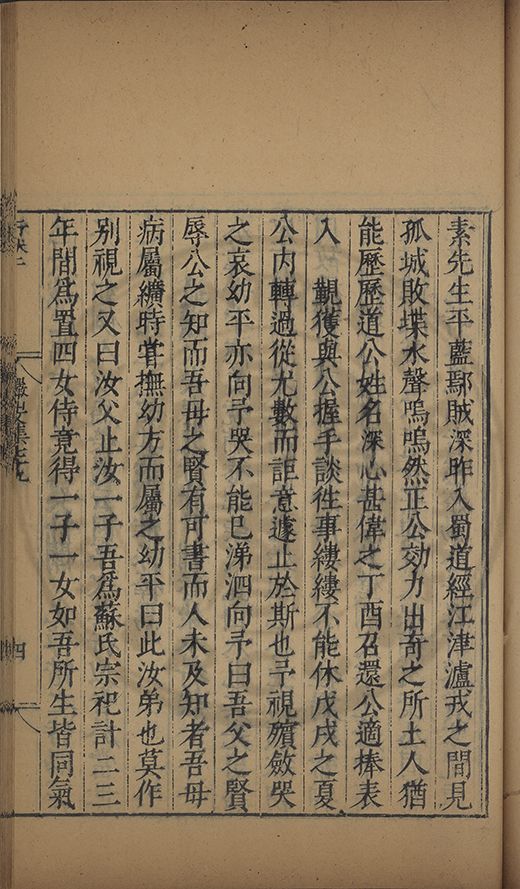 素先生平藍鄢賊深昨入蜀道經江津瀘戎之間見
孤城敗堞水聲嗚嗚然正公効力出奇之所土人猶
能歷歷道公姓名深心甚偉之丁酉召還公適棒表
入　覲獲與公握手談徃事縷縷不能休戊戌之夏
公內轉過從尤數而詎意遽止於斯也予視殯斂哭
之哀幼平亦向予哭不能已涕泗向予曰吾父之賢
辱公之知而吾母之賢有可書而人未及知者吾母
病屬纊時甞撫幼方而屬之幼平曰此汝弟也莫作
別視之又曰汝父止汝一子吾爲蘇氏宗祀計二三
年間爲置四女侍竟得一子一女如吾所生皆同氣
四